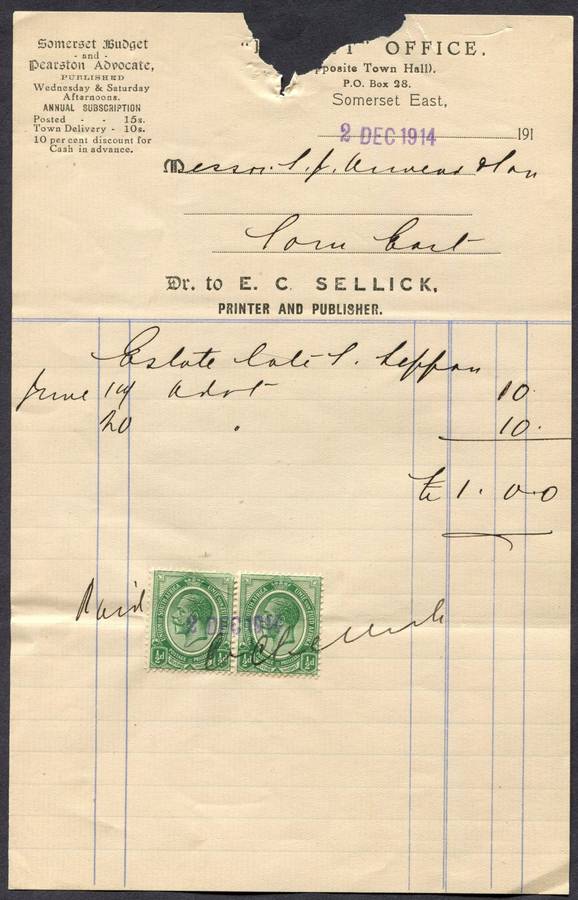 Somerset Budget
- and -
Pearston Advocate,
PUBLISHED
Wednesday & Saturday
Afternoons.
ANNUAL SUBSCRIPTION
Posted - - 15s.
Town Delivery - 10s.
10 per cent discount for
Cash in advance.
" OFFICE.
opposite Town Hall).
P.O. Box 28.
Somerset East,
2 DEC 1914 191
Messrs. & Son
Som East
Dr. to E. C. SELLICK,
PRINTER AND PUBLISHER.
Estate late
June 14 Advt 10
20 " 10.
£1.0.0
Paid
UNION OF SOUTH AFRICA
UNION OF SOUTH AFRICA
2 DEC 1914
½d ½d ½d ½d